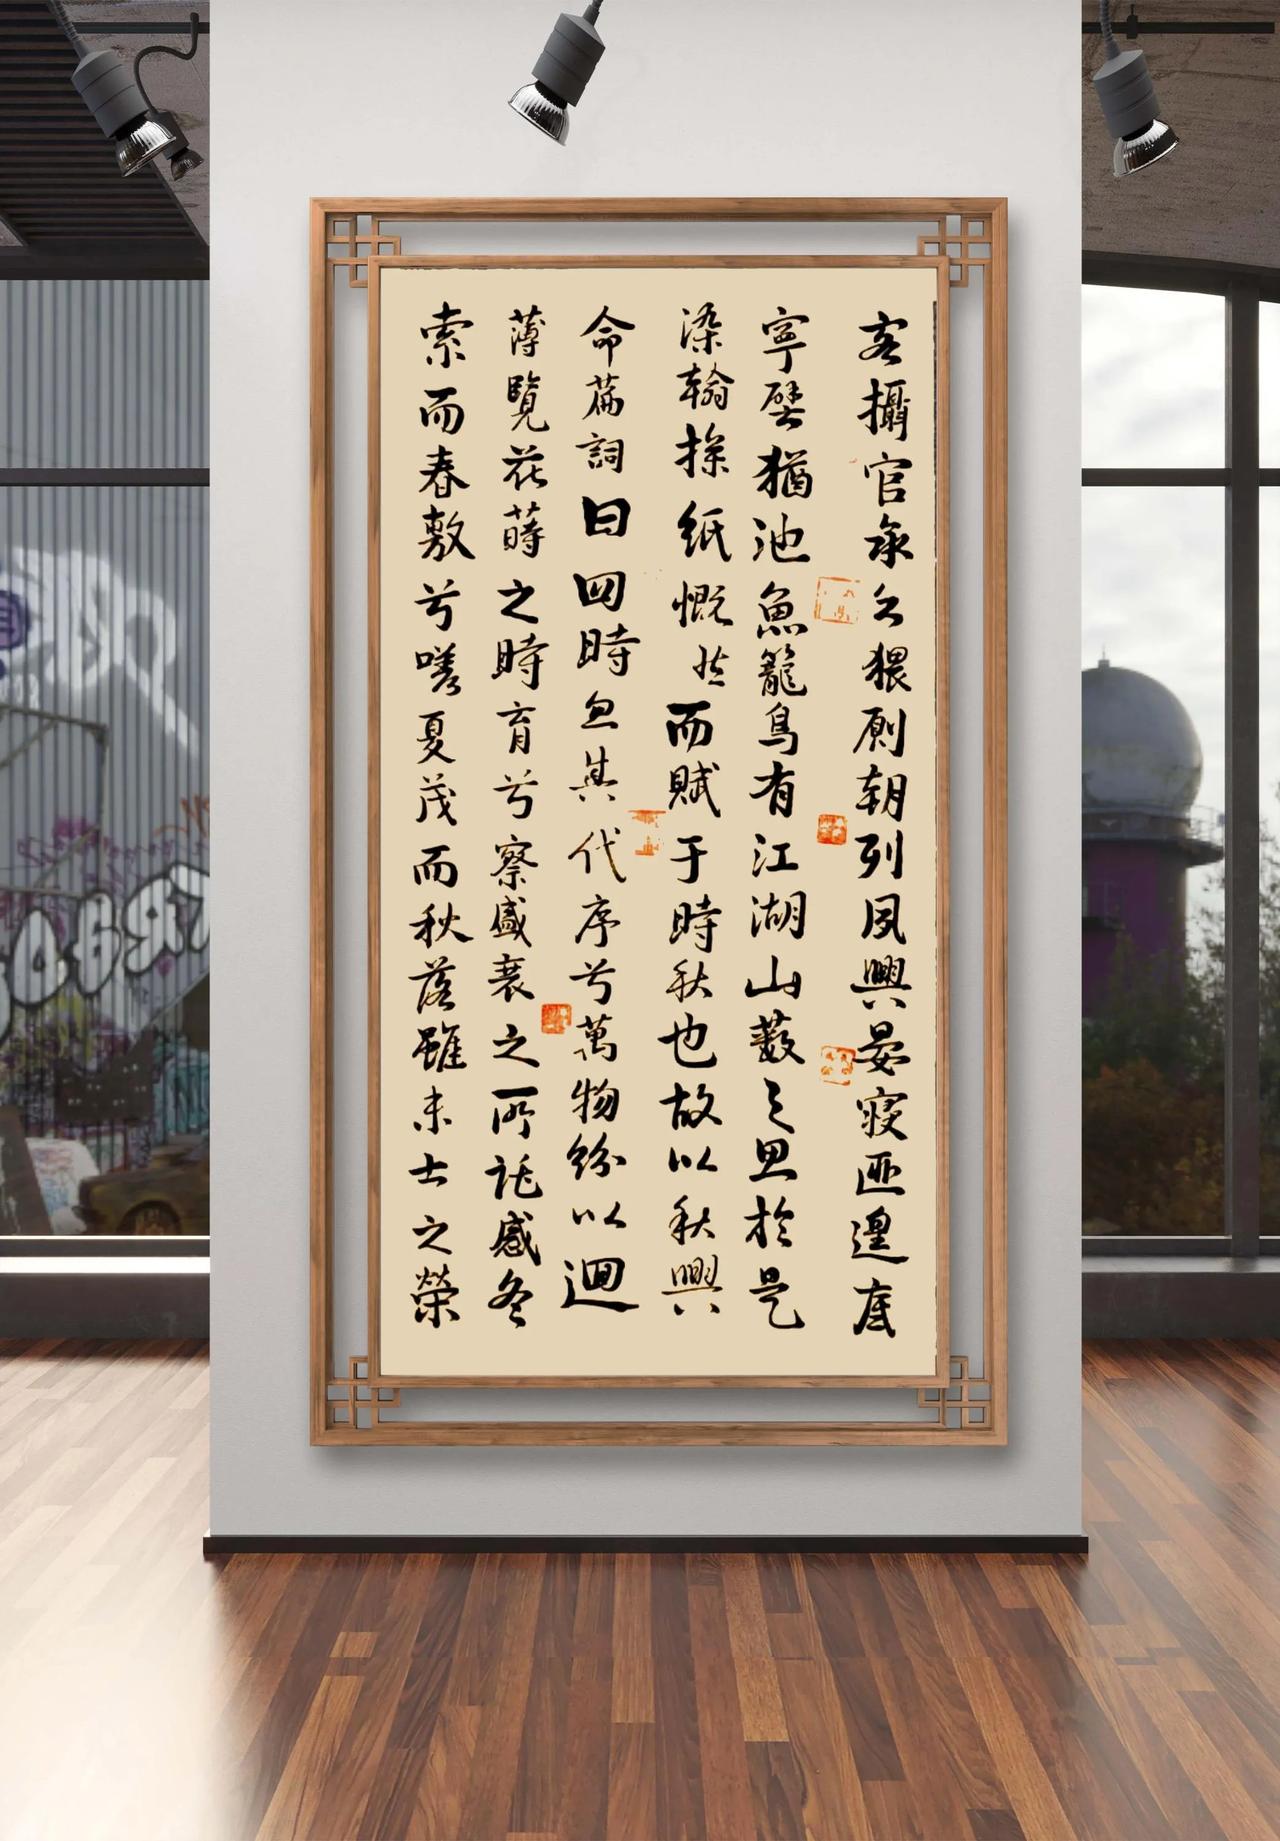 客攝官承乏猥厠朝列夙興晏寢匪遑底
寧譬猶池魚籠鳥有江湖山藪之思於是
染翰操紙慨然而賦于時秋也故以秋興
命篇詞曰四時忽其代序兮萬物紛以迴
薄覽花蒔之時育兮察盛衰之所託感冬
索而春敷兮嗟夏茂而秋落雖末士之榮